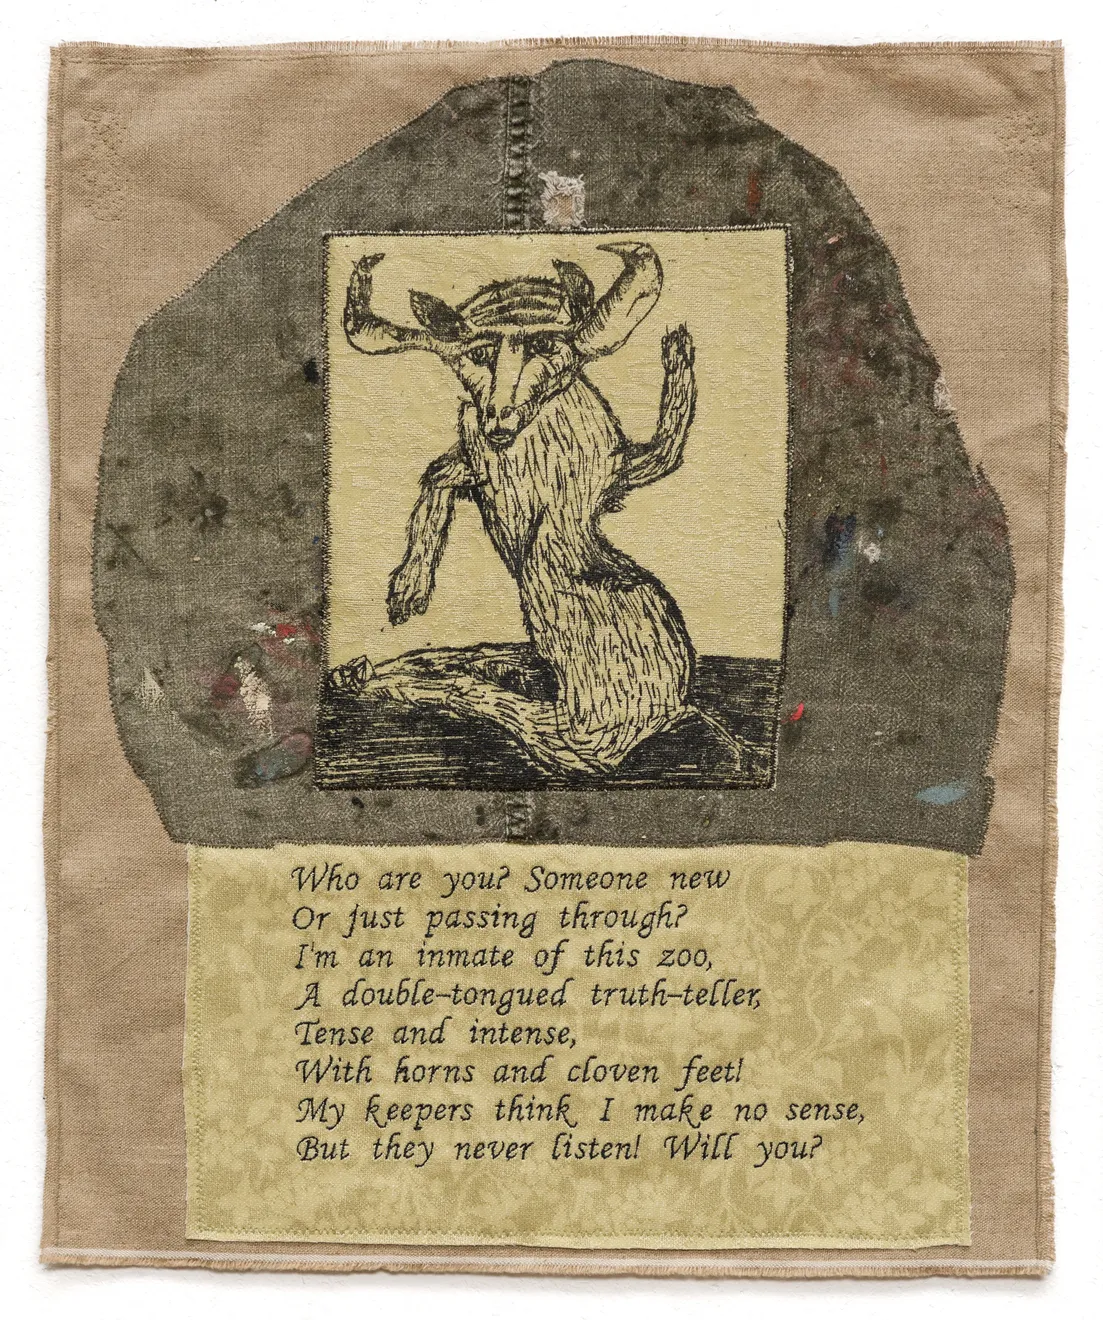 Who are you? Someone new
Or just passing through?
I'm an inmate of this zoo,
A double-tongued truth-teller,
Tense and intense,
With horns and cloven feet!
My keepers think I make no sense,
But they never listen! Will you?